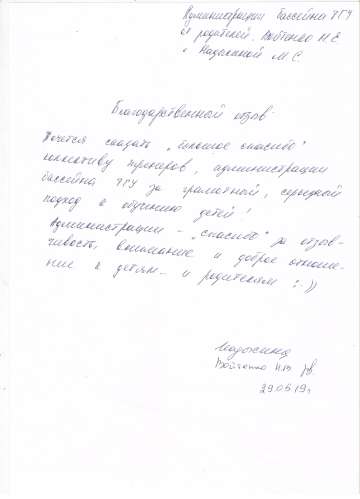 Администрации бассейна ТГУ
от родителей Войтенко Н.В.
и Надыкиной М.С.
Благодарственный отзыв.
Хочется сказать „большое спасибо"
коллективу тренеров, администрации
бассейна ТГУ за грамотный, серьезный
подход к обучению детей!
Администрации – „спасибо" за отзыв-
чивость, внимание и доброе отноше-
ние к детям и родителям :-))
Войтенко Н.В.
29.06.19г